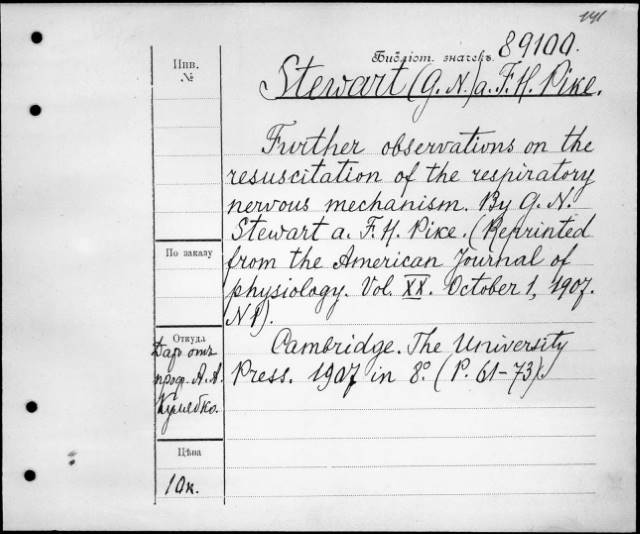 141
Библіот. значекъ 89100.
Инв.
№
Stewart (G. N.) a. F. H. Pike.
Further observations on the
resuscitation of the respiratory
nervous mechanism. By G. N.
Stewart a. F. H. Pike. (Reprinted
from the American Journal of
physiology. Vol. XX. October 1, 1907.
N1).
По заказу
Откуда
Даръ отъ
проф. А. А.
Кулябко.
Cambridge. The University
Press. 1907 in 8° (P. 61-73).
Цѣна
10к.